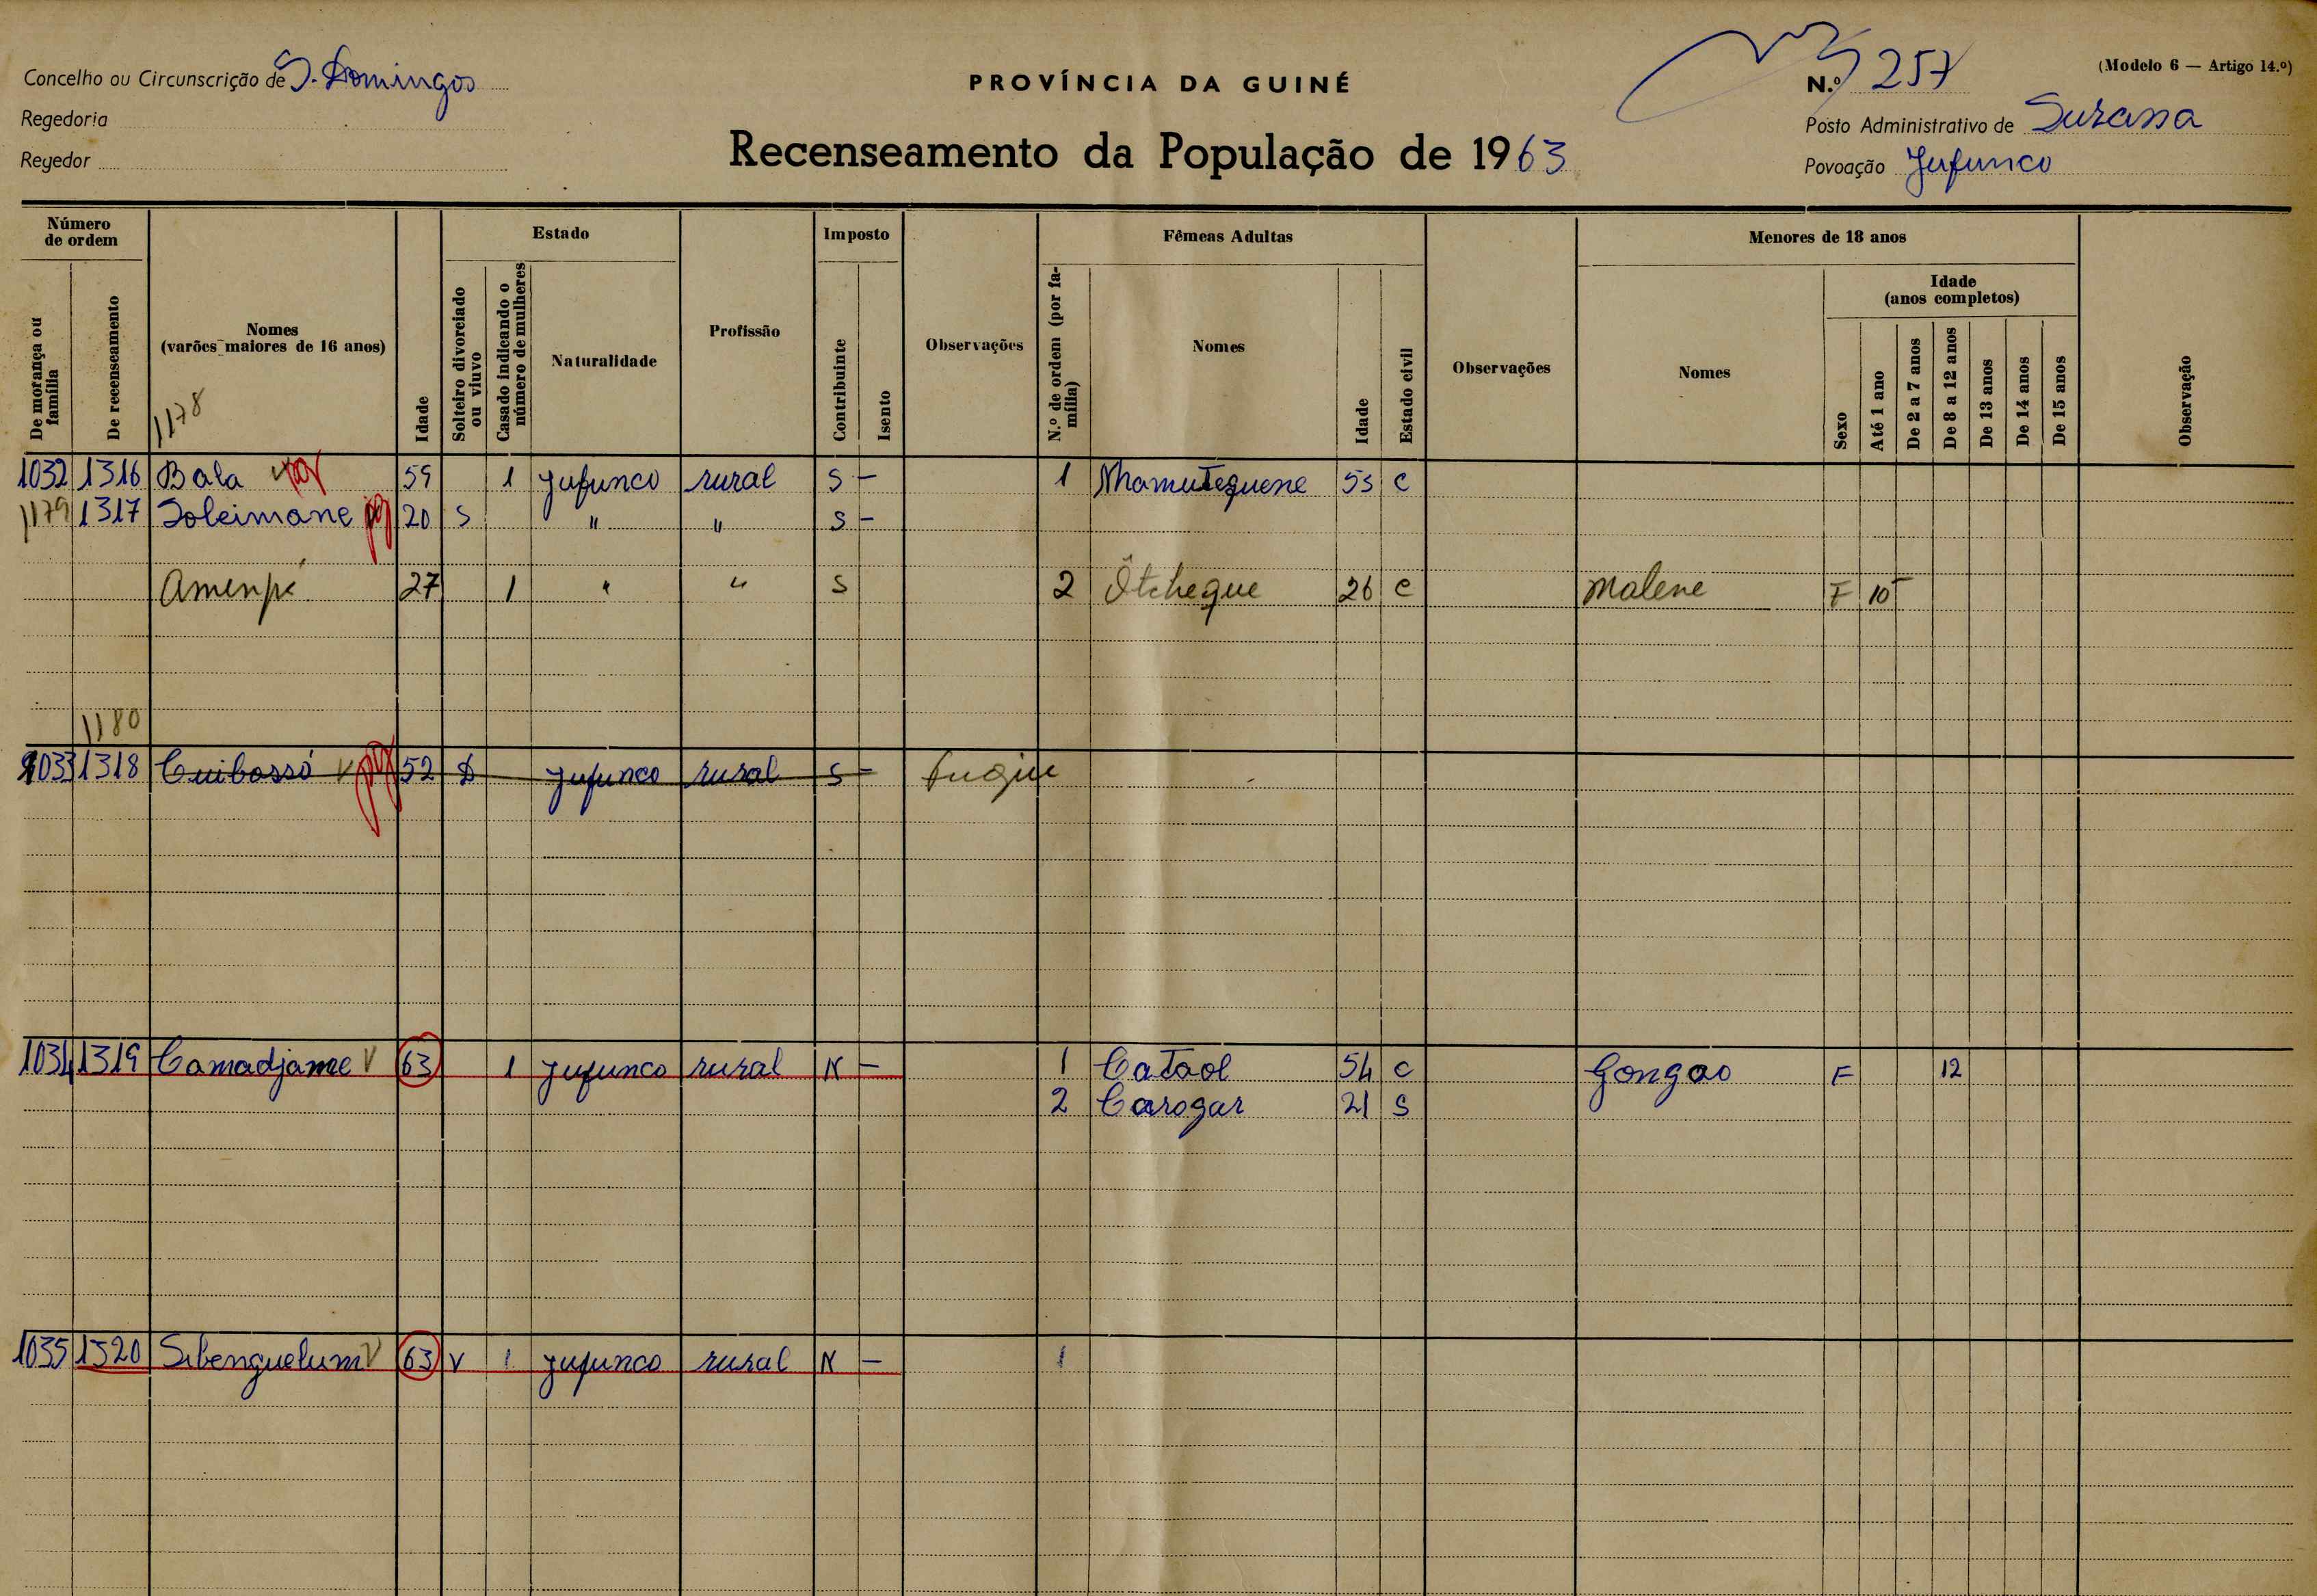 Concelho ou Circunscrição de S. Domingos
Regedoria
Regedor
PROVÍNCIA DA GUINÉ
Recenseamento da População de 1963
(Modelo 6 — Artigo 14.º)
N.º 257
Posto Administrativo de Suzana
Povoação Jufunco
Número de ordem
De morança ou família
De recenseamento
Nomes (varões maiores de 16 anos)
Idade
Estado
Solteiro divorciado ou viuvo
Casado indicando o número de mulheres
Naturalidade
Profissão
Imposto
Contribuinte
Isento
Observações
Fêmeas Adultas
N.º de ordem (por família)
Nomes
Idade
Estado civil
Observações
Menores de 18 anos
Nomes
Sexo
Idade (anos completos)
Até 1 ano
De 2 a 7 anos
De 8 a 12 anos
De 13 anos
De 14 anos
De 15 anos
Observação
1178
1032 1316 Bala 59 1 Jufunco rural S — 1 Nhamuteguene 53 C
1179 1317 Soleimane pg 20 S " " S —
Amenpé 27 1 " " S 2 Ôtchegue 26 C Malene F 10
1180
1033 1318 Cuibossó V pg 52 D Jufunco rural S — Fugiu
1034 1319 Camadjame V 63 1 Jufunco rural N — 1 Cataol 54 C Gongao F 12
2 Carogar 21 S
1035 1320 Sibenguelum V 63 V 1 Jufunco rural N — 1